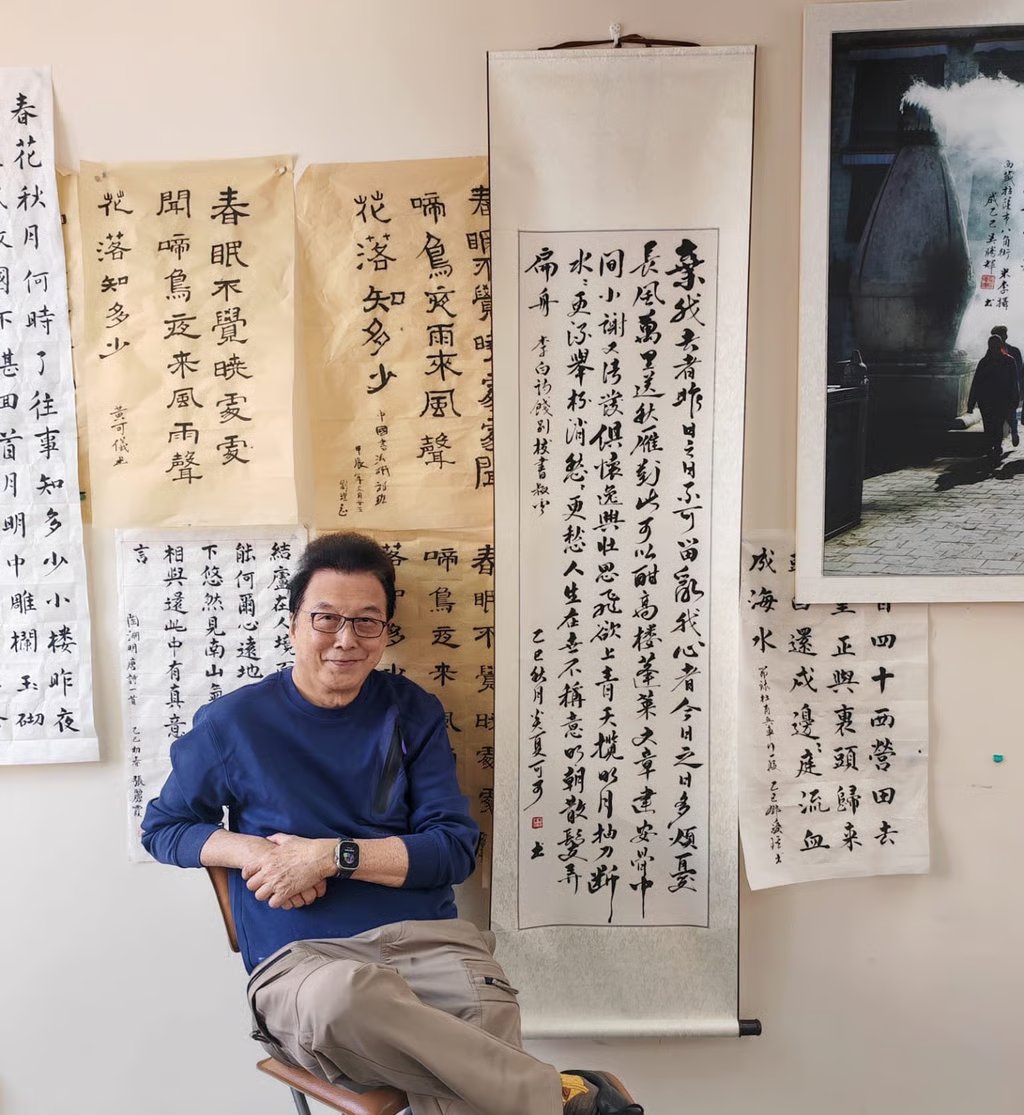 春花秋月何時了往事知多少小楼昨夜
故國不堪回首月明中雕欄玉砌
春眠不覺曉處處
聞啼鳥夜来風雨聲
花落知多少
黃可儀书
春眠不覺曉處處聞
啼鳥夜雨來風聲
花落知多少
中國書法研習班
甲辰年三月廿三
結廬在人境而
能何爾心遠地
下悠然見南山氣
相與還此中有真意
言
陶淵明唐詩一首 乙巳初春 張麗霞
春眠不覺曉處處
啼鳥夜来風
落知多少
棄我去者昨日之日不可留亂我心者今日之日多煩憂
長風萬里送秋雁對此可以酣高楼蓬萊文章建安骨中
間小謝又清發俱懷逸興壯思飛欲上青天攬明月抽刀斷
水々更流舉杯消愁々更愁人生在世不稱意明朝散髮弄
扁舟 李白詩餞別校書叔雲 乙巳秋月炎夏可可 书
西藏拉薩市八角街 米李攝
歲乙巳 书
四十西營田去
正與裹頭歸来
還戍邊々庭流血
成海水